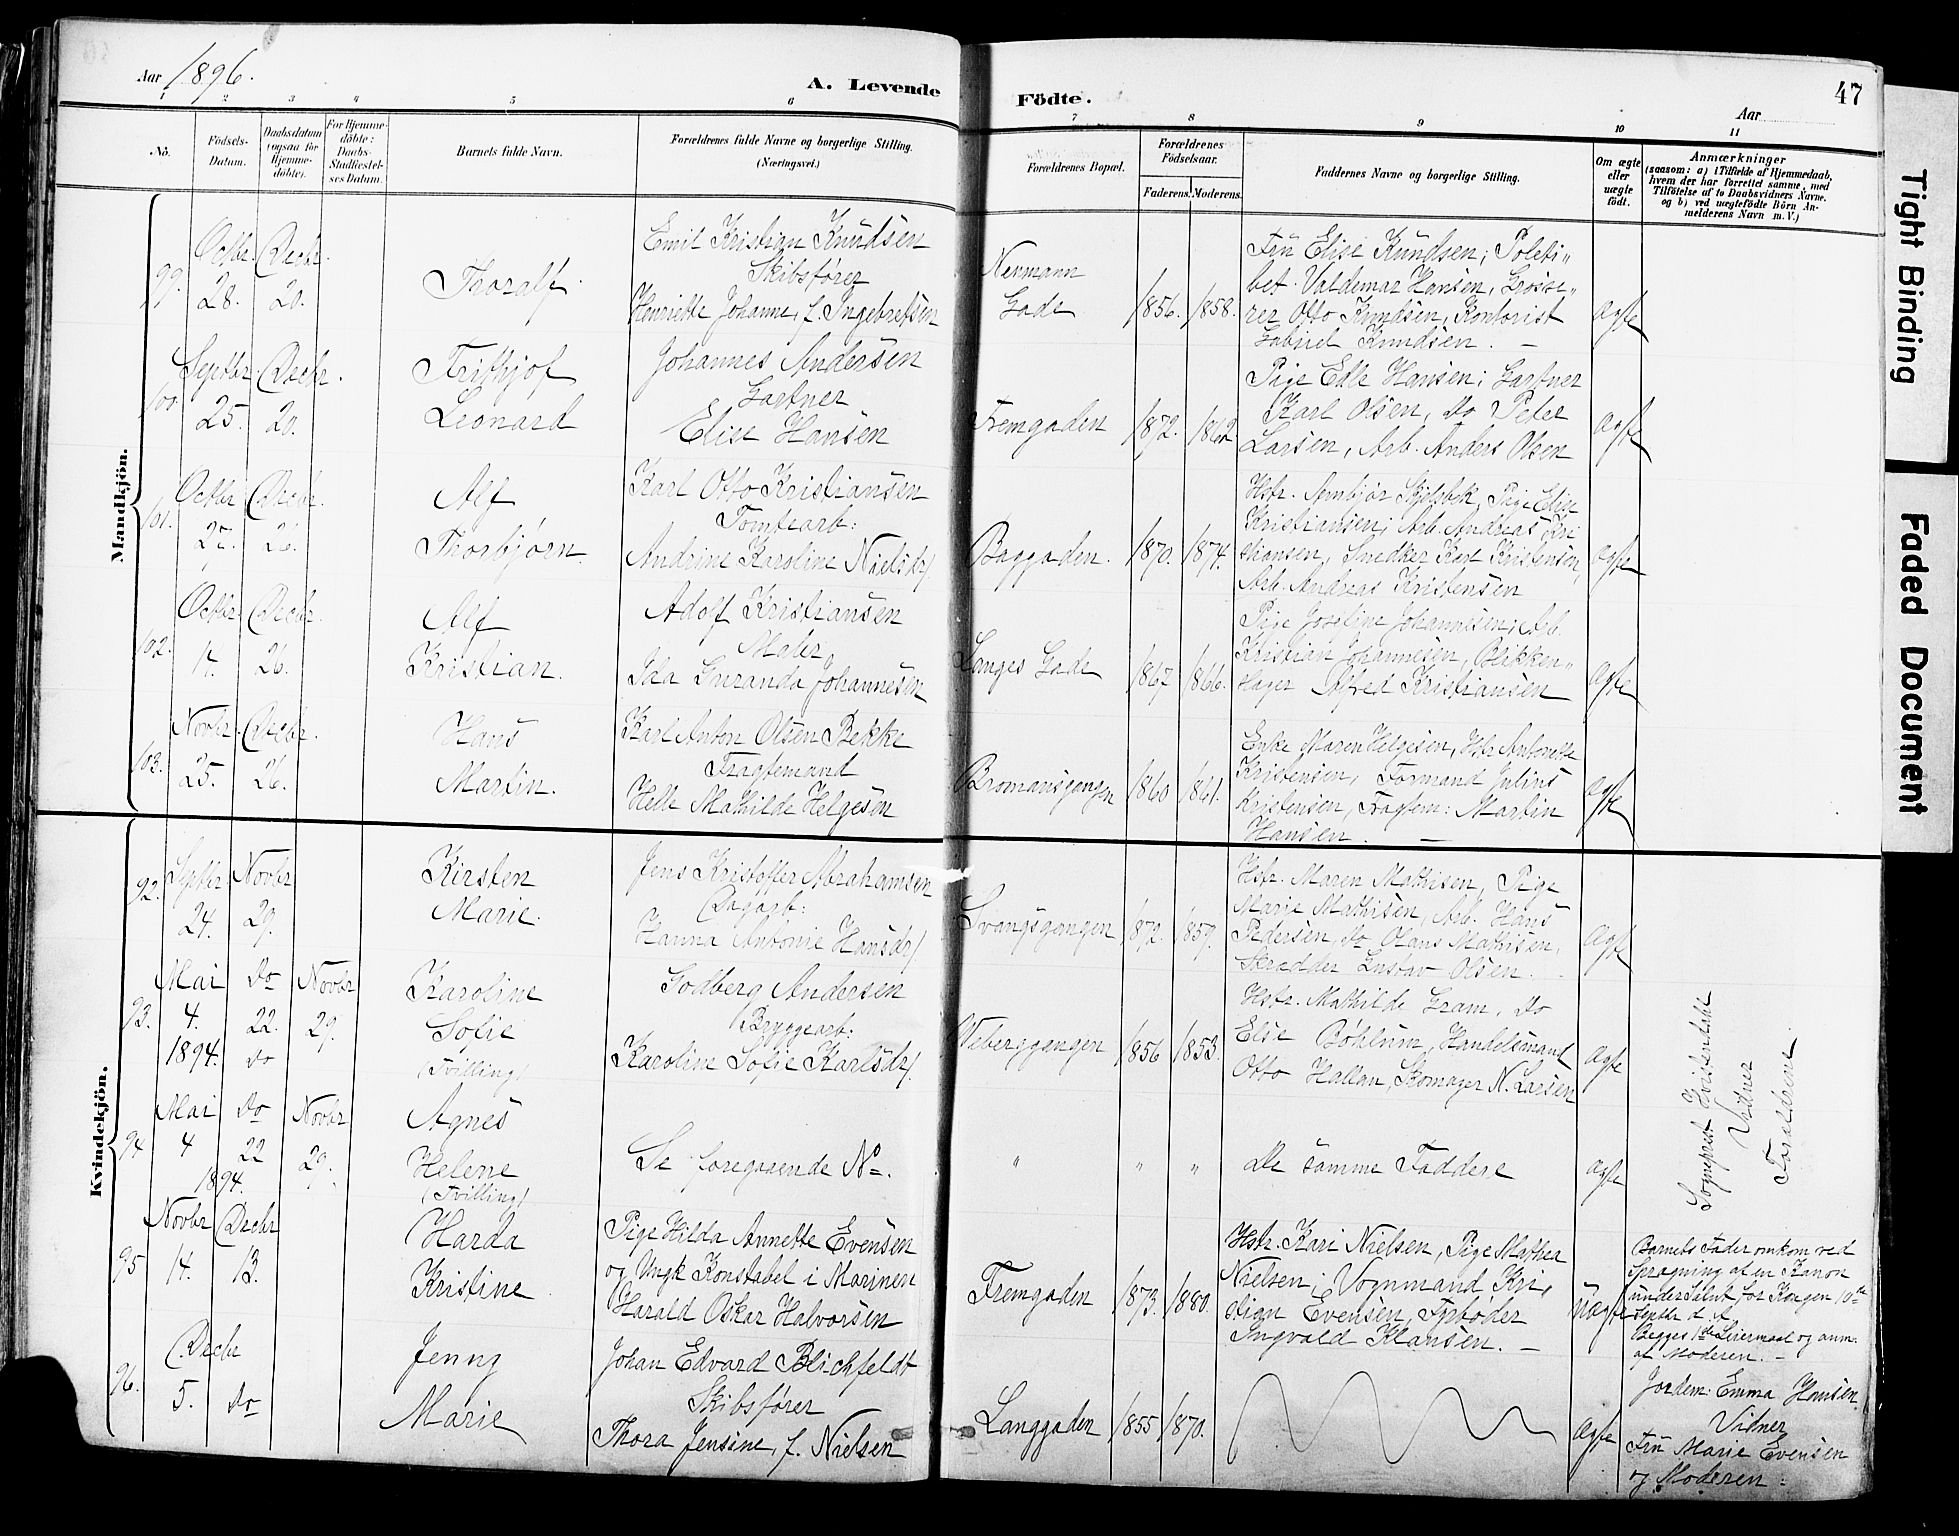 Aar 1896.
A. Levende
Födte.
Aar
47
1 2 3 4 5 6 7 8 9 10 11
No.
Födsels-
Datum.
Daabsdatum
(ogsaa for
Hjemme-
döbte).
For Hjemme-
döbte:
Daabs-
Stadfæstel-
ses Datum.
Barnets fulde Navn.
Forældrenes fulde Navne og borgerlige Stilling.
(Næringsvei.)
Forældrenes Bopæl.
Forældrenes
Födselsaar.
Faderens. Moderens.
Faddernes Navne og borgerlige Stilling.
Om ægte
eller
uægte
födt.
Anmærkninger
(saasom: a) i Tilfælde af Hjemmedaab,
hvem der har forrettet samme, med
Tilföielse af to Daabsvidners Navne.
og b) ved uægtefödte Börn An-
melderens Navn m. V.)
Mandkjön.
99.
Octbr.
28.
Decbr.
20.
Thoralf
Emil Kristian Knudsen
Skibsfører
Henriette Johanne, f. Ingebretsen
Nermann
Gade
1856. 1858.
Frü Elise Knudsen; Politi-
bet. Valdemar Hansen, Grosse-
rer Otto Knudsen, Kontorist
Gabriel Knudsen. —
ægte
100
Septbr.
25.
Decbr.
20.
Frithjof
Leonard
Johannes Andersen
Gartner
Elise Hansen
Fremgaden
1872. 1862.
Pige Edle Hansen; Gartner
Karl Olsen, Do Peter
Larsen, Arb. Anders Olsen
ægte
101.
Octbr.
27.
Decbr.
26.
Alf
Thorbjørn.
Karl Otto Kristiansen
Tomtearb:
Andrine Karoline Nielsdr
Baggaden.
1870. 1874.
Hstr. Annbjør Skjelsbk, Pige Elise
Kristiansen; Arb. Andreas Kri
stiansen, Snedker Karl Kristensen,
Arb. Andreas Kristensen
ægte
102.
Octbr.
17.
Decbr.
26.
Alf
Kristian.
Adolf Kristiansen
Maler
Ida Guranda Johannesen
Langes Gade
1867 1866.
Pige Josefine Johannesen; Arb.
Kristian Johannesen, Blikken-
slager Alfred Kristiansen
ægte
103.
Novbr.
25.
Decbr.
26.
Hans
Martin.
Karl Anton Olsen Bekke
Fragtemand
Helle Mathilde Helgesen
Bromansgangen
1860 1861.
Enke Maren Helgesen, Hstr Antonette
Kristensen, Formand Julius
Kristensen, Fragtem: Martin
Hansen. —
ægte
Kvindekjön.
92.
Septbr.
24.
Novbr
29.
Kirsten
Marie.
Jens Kristoffer Abrahamsen
Dagarb:
Hanna Antonie Hansdr
Svangsgangen
1872. 1859.
Hstr. Maren Mathisen, Pige
Marie Mathisen, Arb. Hans
Pedersen, Do Olaus Mathisen,
Skrædder Gustav Olsen.
ægte
93.
Mai
4.
1894.
Do
22.
Do
Novbr
29.
Karoline
Sofie
(Tvilling)
Godberg Andersen
Bryggearb:
Karoline Sofie Karlsdr
Weberggangen
1856 1853.
Hstr. Mathilde Gram, Do
Elise Bøhlum, Handelsmand
Otto Hallan, Skomager N. Larsen
ægte
94
Mai
4
1894.
Do
22
Novbr
29.
Agnes
Helene
(Tvilling)
Se foregaaende No.
" " "
De samme Faddere
ægte
Sogneprest Kvisterdahl
Vidner
Forældrene.
95
Novbr
14.
Decbr
13.
Harda
Kristine
Pige Hilda Annette Evensen
og Ungk Konstabel i Marinen
Harald Oskar Halvorsen
Fremgaden
1873. 1880.
Hstr. Kari Nielsen, Pige Mathea
Nielsen; Vognmand Kri-
stian Evensen, Fyrbøder
Ingvald Klausen. —
uægte
Barnets Fader omkom ved
Sprægning af en Kanon
under Salut for Kongen 10de
Septbr d. A.
Begges 1ste Leiermaal og anm.
af Moderen. —
96.
Decbr
5.
Do
Jenny
Marie
Johan Edvard Blichfeldt
Skibsfører
Thora Jensine, f. Nielsen
Langgaden
1855 1870.
ægte
Jordem: Emma Hansen
Vidner
Frü Marie Evensen
og Moderen.
Tight Binding
Faded Document